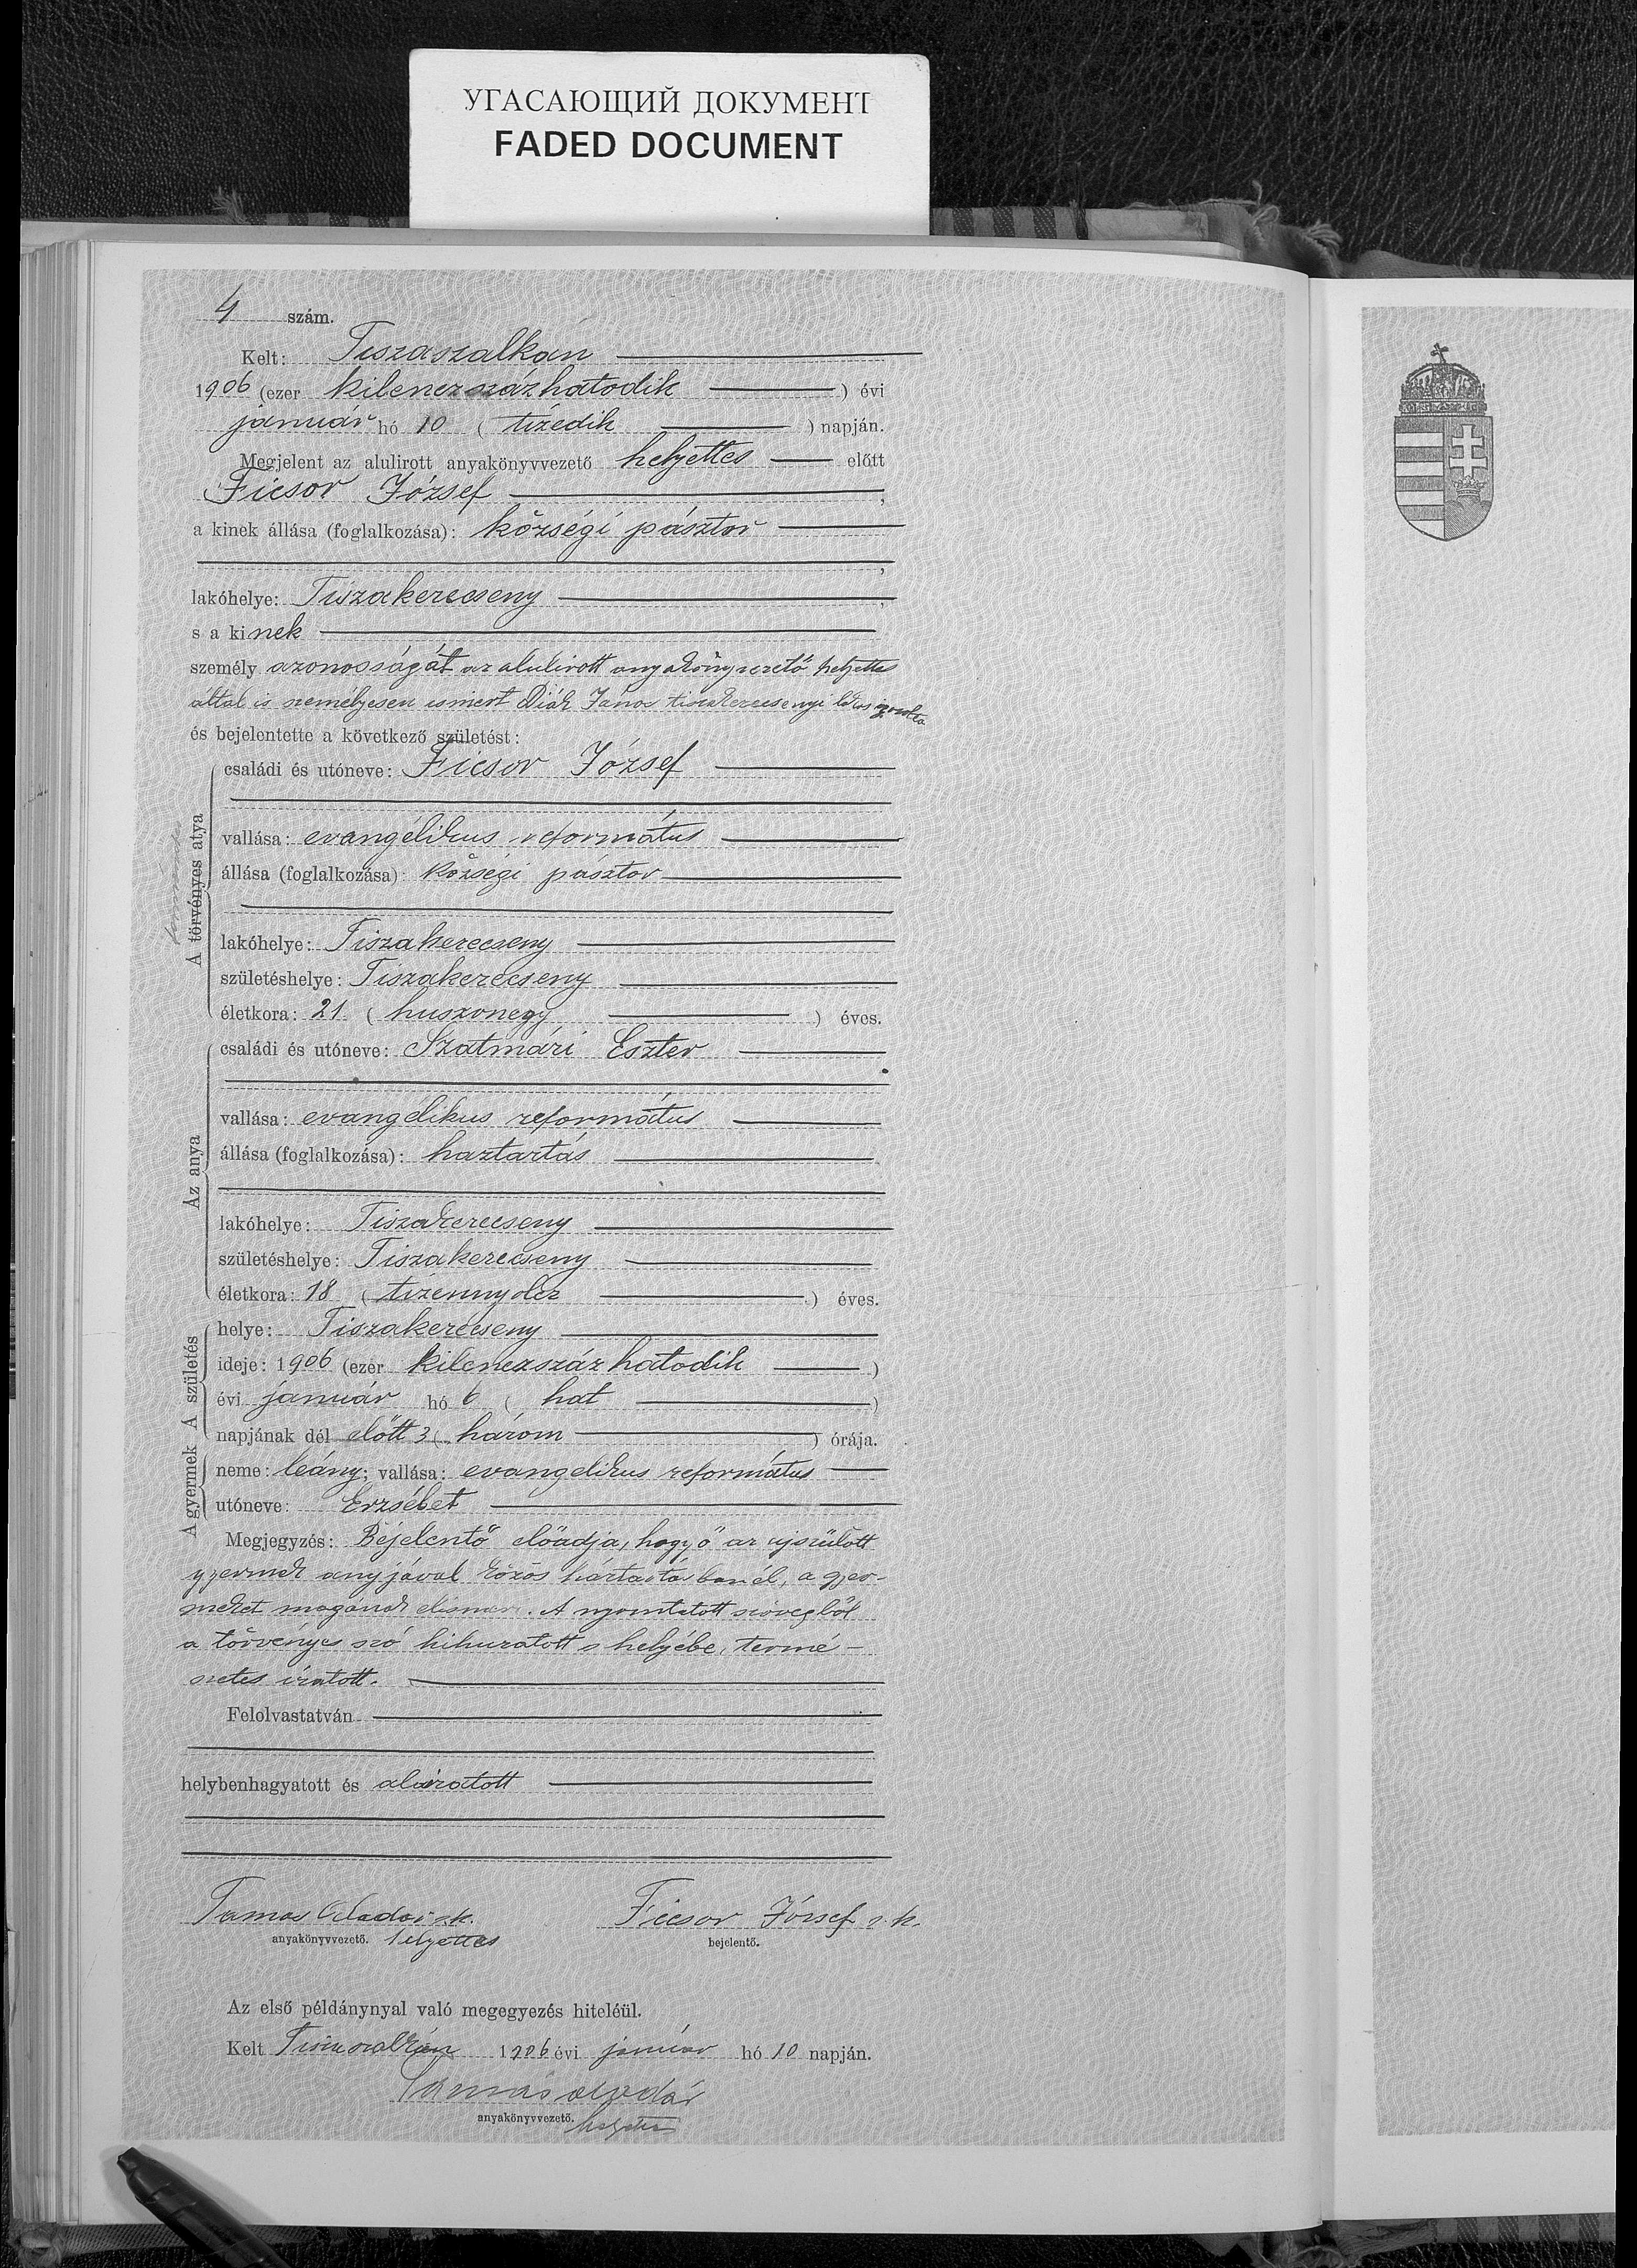 УГАСАЮЩИЙ ДОКУМЕНТ
FADED DOCUMENT
4 szám.
Kelt: Tiszaszalkán
1906 (ezer kilenczszázhatodik ) évi
január hó 10 ( tizedik ) napján.
Megjelent az alulirott anyakönyvvezető helyettes előtt
Ficsor József ,
a kinek állása (foglalkozása): községi pásztor
,
lakóhelye: Tiszakerecseny ,
s a kinek
személy azonosságát az alulirott anyakönyvvezető helyettes
által is személyesen ismert Diák János tiszakerecsenyi lakos igazolta
és bejelentette a következő születést:
A törvényes atya
természetes
családi és utóneve: Ficsor József
vallása: evangélikus református
állása (foglalkozása): községi pásztor
lakóhelye: Tiszakerecseny
születéshelye: Tiszakerecseny
életkora: 21 ( huszonegy ) éves.
Az anya
családi és utóneve: Szatmári Eszter
vallása: evangélikus református
állása (foglalkozása): haztartás
lakóhelye: Tiszakerecseny
születéshelye: Tiszakerecseny
életkora: 18 ( tizennyolcz ) éves.
A születés
helye: Tiszakerecseny
ideje: 1906 (ezer kilenczszáz hatodik )
évi január hó 6 ( hat )
napjának dél előtt 3 ( három ) órája.
A gyermek
neme: leány; vallása: evangelikus református
utóneve: Erzsébet
Megjegyzés: Bejelentő előadja, hogy ő az ujszülött
gyermek anyjával közös háztartásban él, a gyer-
meket magának elismeri. A nyomtatott szövegből
a törvényes szó kihuzatott s helyébe, termé-
szetes iratott.
Felolvastatván
helybenhagyatott és aláiratott
Tamas Aladár s.k. Ficsor József s. k.
anyakönyvvezető. helyettes bejelentő.
Az első példánynyal való megegyezés hiteléül.
Kelt Tiszaszalkán 1906 évi január hó 10 napján.
Tamás Aladár
anyakönyvvezető. helyettes